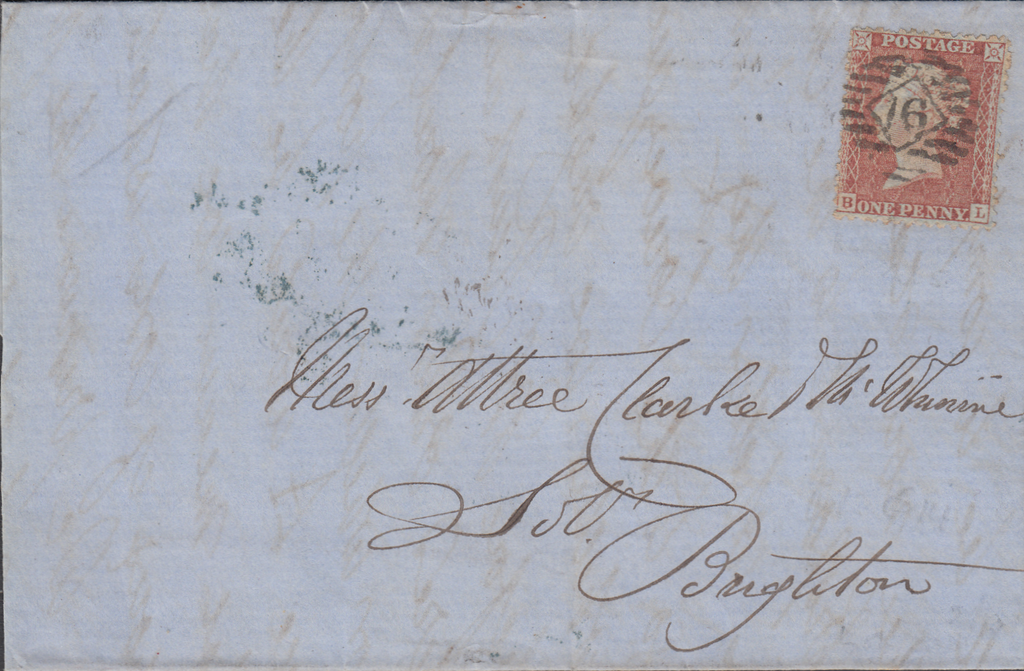 POSTAGE
16
B ONE PENNY L
Messrs Attree Clarke & McWhinnie
Solrs
Brighton